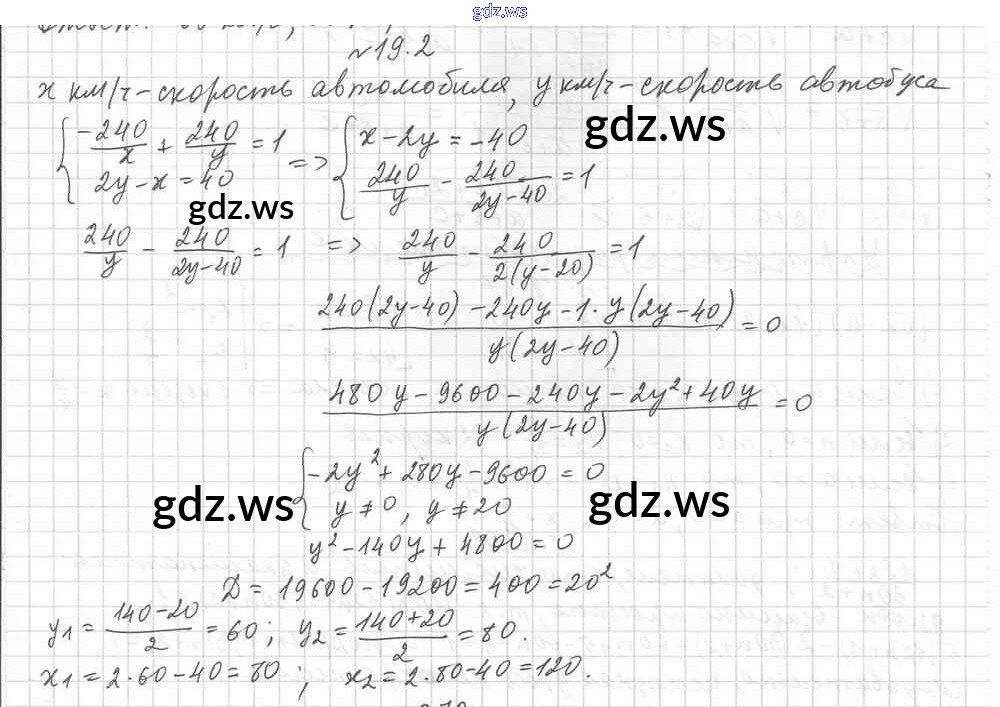 gdz.ws
№19.2
x км/ч-скорость автомобиля, y км/ч-скорость автобуса
{ -240/x + 240/y = 1 => { x-2y = -40
2y-x = 40 240/y - 240/(2y-40) = 1
gdz.ws
gdz.ws
240/y - 240/(2y-40) = 1 => 240/y - 240/(2(y-20)) = 1
(240(2y-40) - 240y - 1·y(2y-40))/(y(2y-40)) = 0
(480y - 9600 - 240y - 2y²+40y)/(y(2y-40)) = 0
{ -2y²+280y-9600 = 0
y≠0, y≠20
gdz.ws
gdz.ws
y²-140y+4800=0
D = 19600-19200=400=20²
y₁ = (140-20)/2 = 60; y₂ = (140+20)/2 = 80.
x₁ = 2·60-40=80; x₂ = 2·80-40=120.